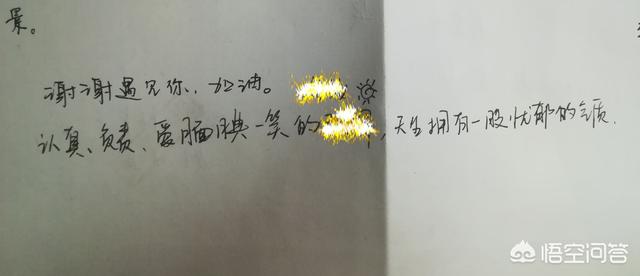 景。
谢谢遇见你，加油。
认真、负责、爱腼腆一笑的，天生拥有一股忧郁的气质.
悟空问答